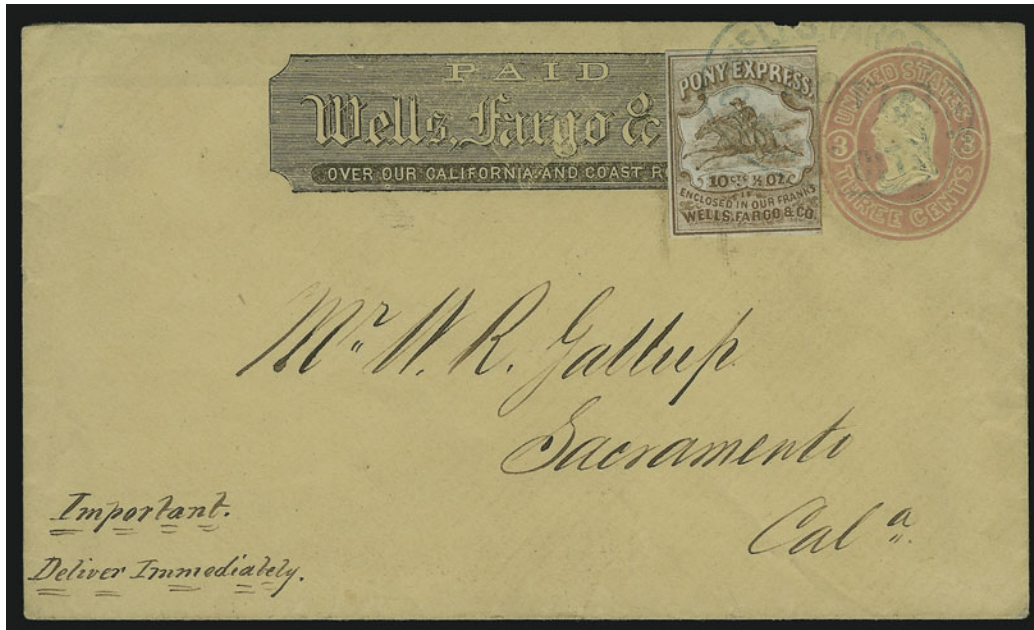 PAID
Wells, Fargo &
OVER OUR CALIFORNIA AND COAST R
PONY EXPRESS.
10 cts ½ OZ.
IF
ENCLOSED IN OUR FRANKS
WELLS, FARGO & CO.
WELLS, FARGO
UNITED STATES
3 3
THREE CENTS
Mr. W. R. Gallup
Sacramento
Cala.
Important.
Deliver Immediately.